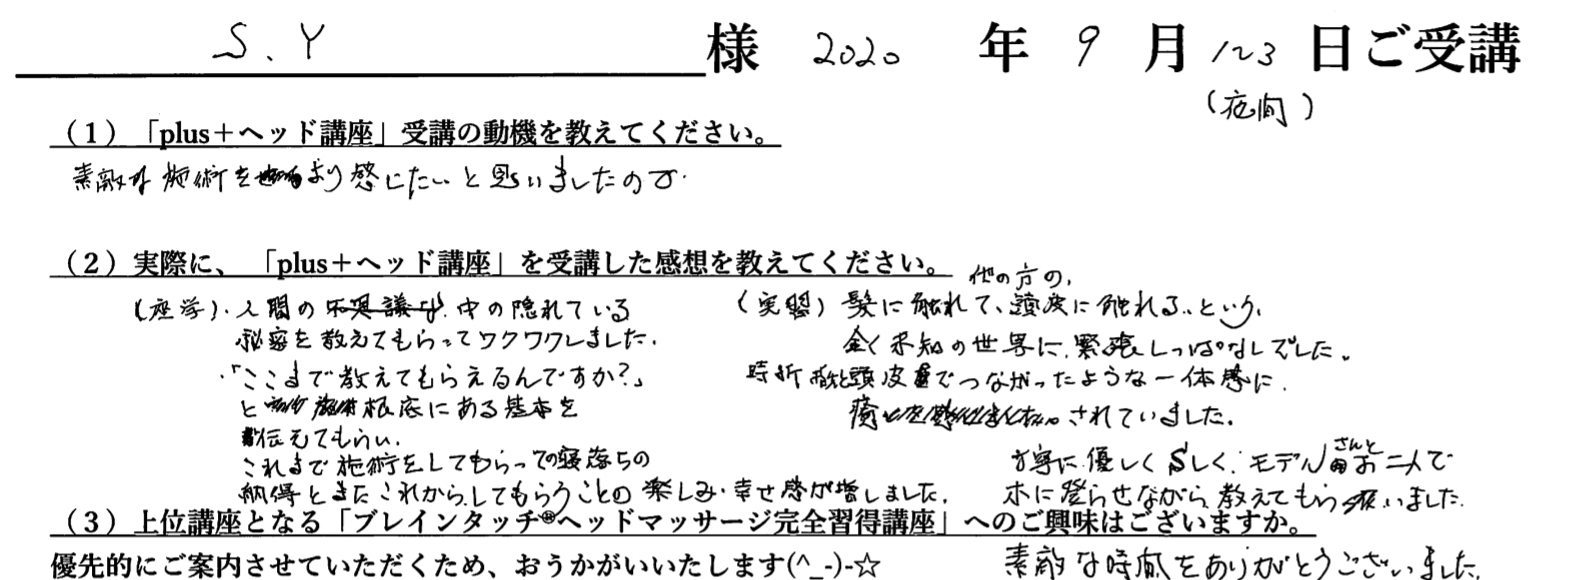 S.Y 様 2020 年 9 月 1~3 日ご受講
(夜間)
(1)「plus+ヘッド講座」受講の動機を教えてください。
素敵な施術をより感じたいと思いましたので
(2)実際に、「plus+ヘッド講座」を受講した感想を教えてください。
(座学)・人間の中の隠れている
秘密を教えてもらってワクワクしました.
・「ここまで教えてもらえるんですか?」
と根底にある基本を
伝えてもらい.
これまで施術をしてもらっての寝落ちの
納得とまたこれからしてもらうことの楽しみ・幸せ感が増しました.
(実習)髪に触れて、他の方の、頭皮に触れる..という、
全く未知の世界に、緊張しっぱなしでした。
時折 頭皮でつながったような一体感に.
癒されていました.
丁寧に優しく しく、モデルさんとお二人で
木に登らせながら、教えてもらいました.
素敵な時間をありがとうございました.
(3)上位講座となる「ブレインタッチ®ヘッドマッサージ完全習得講座」へのご興味はございますか。
優先的にご案内させていただくため、おうかがいいたします(^_-)-☆